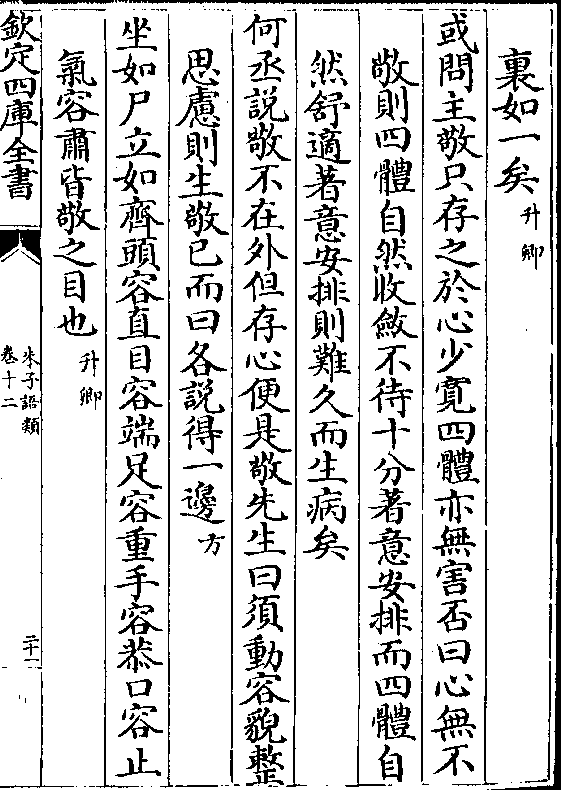 裏如一矣升卿
或問主敬只存之於心少寛四體亦無害否曰心無不
敬則四體自然收斂不待十分著意安排而四體自
然舒適著意安排則難久而生病矣
何丞説敬不在外但存心便是敬先生曰須動容貌整
思慮則生敬已而曰各説得一邊方
坐如尸立如齊頭容直目容端足容重手容恭口容止
氣容肅皆敬之目也升卿
欽定四庫全書
朱子語類
卷十二
二十一